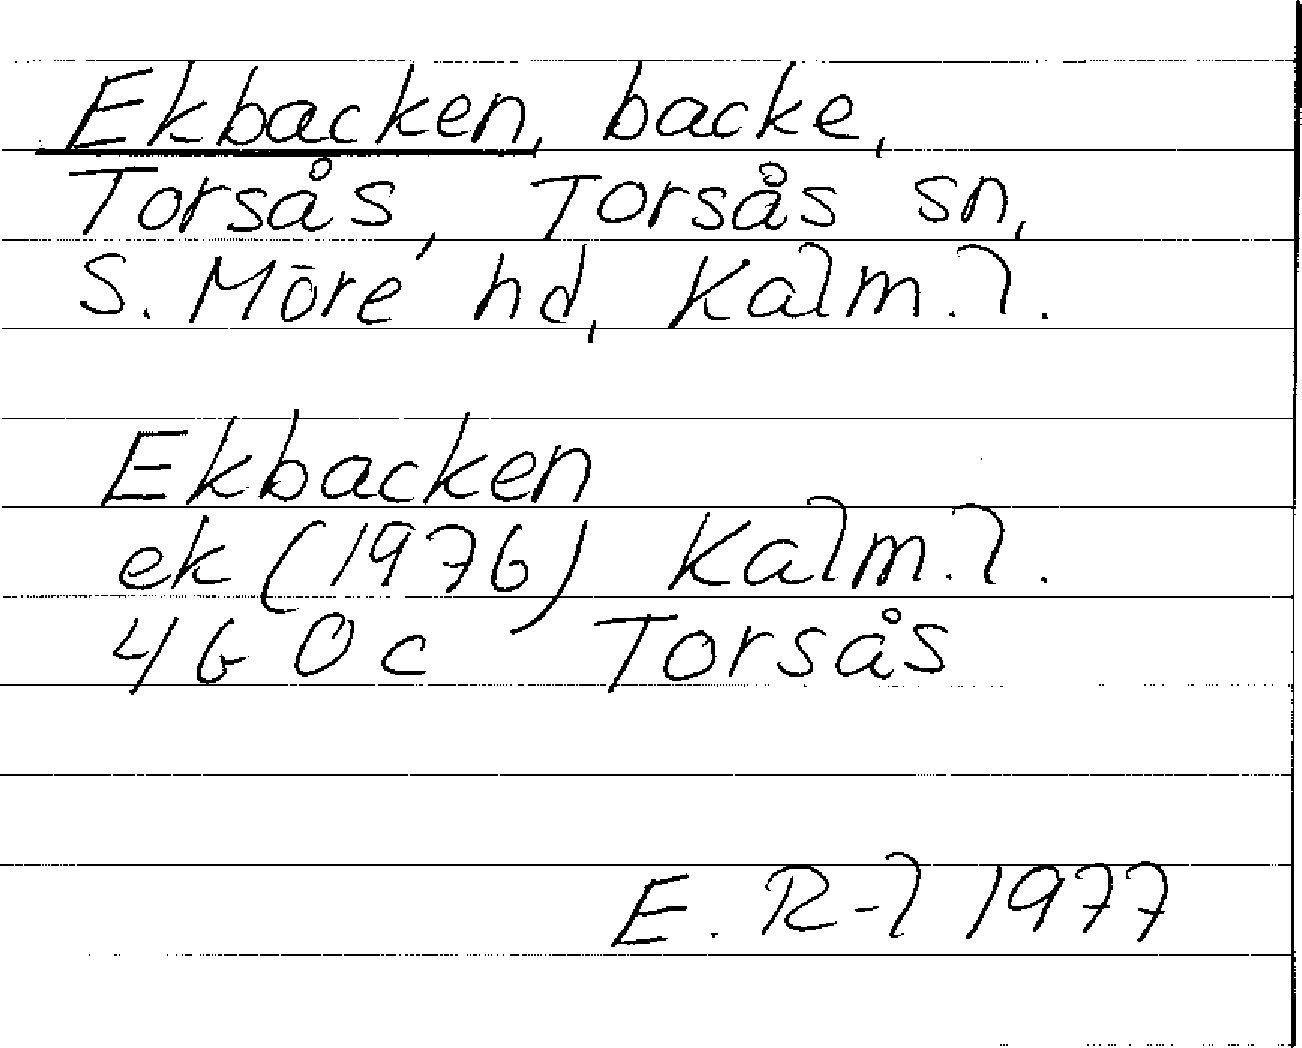 Ekbacken, backe,
Torsås, Torsås sn,
S. Möre hd, Kalm. l.
Ekbacken
ek (1976) Kalm. l.
4G 0c Torsås
E. R-l 1977